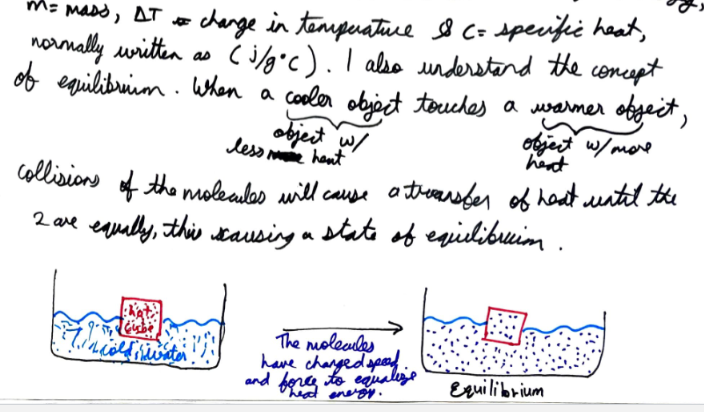 m = mass, ΔT = change in temperature & c = specific heat,
normally written as (j/g°c). I also understand the concept
of equilibrium. When a cooler object touches a warmer object,
object w/ less heat
object w/ more heat
collisions of the molecules will cause a transfer of heat until the
2 are equally, this causing a state of equilibrium.
hot
cube
cold water
The molecules
have changed speed
and force to equalize
heat energy.
Equilibrium